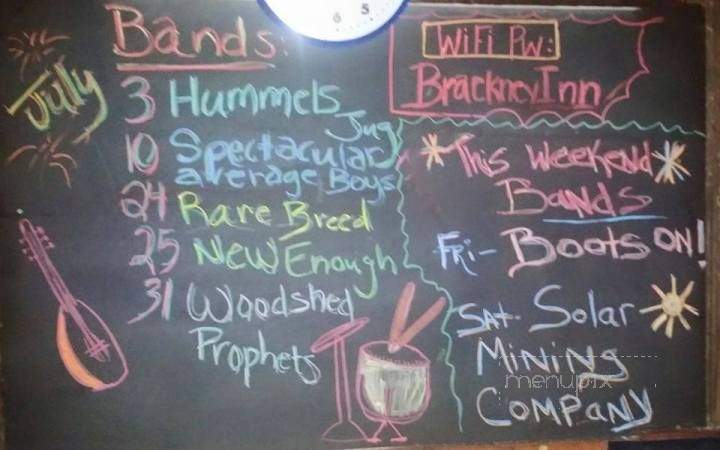 Bands:
July
3 Hummels
Jug
10 Spectacular
average Boys
24 Rare Breed
25 New Enough
31 Woodshed
Prophets
WiFi PW:
BrackneyInn
This Weekend
Bands
Fri- Boots on!
Sat- Solar
Mining
Company
menupix
6 5